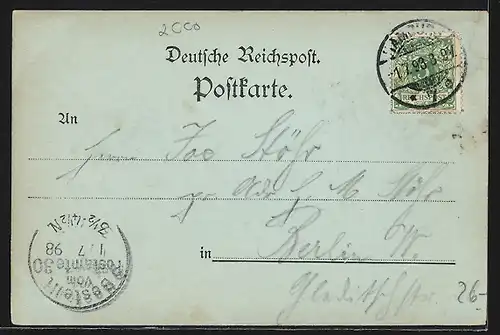 2000
Deutsche Reichspost.
Postkarte.
1.7.98.
REICHSPOST
An
Jac Stöhr
in Berlin W.
Gleditschstr.
26-
Bestellt
vom
Postamte 30
1/7 98
3½-4½N.